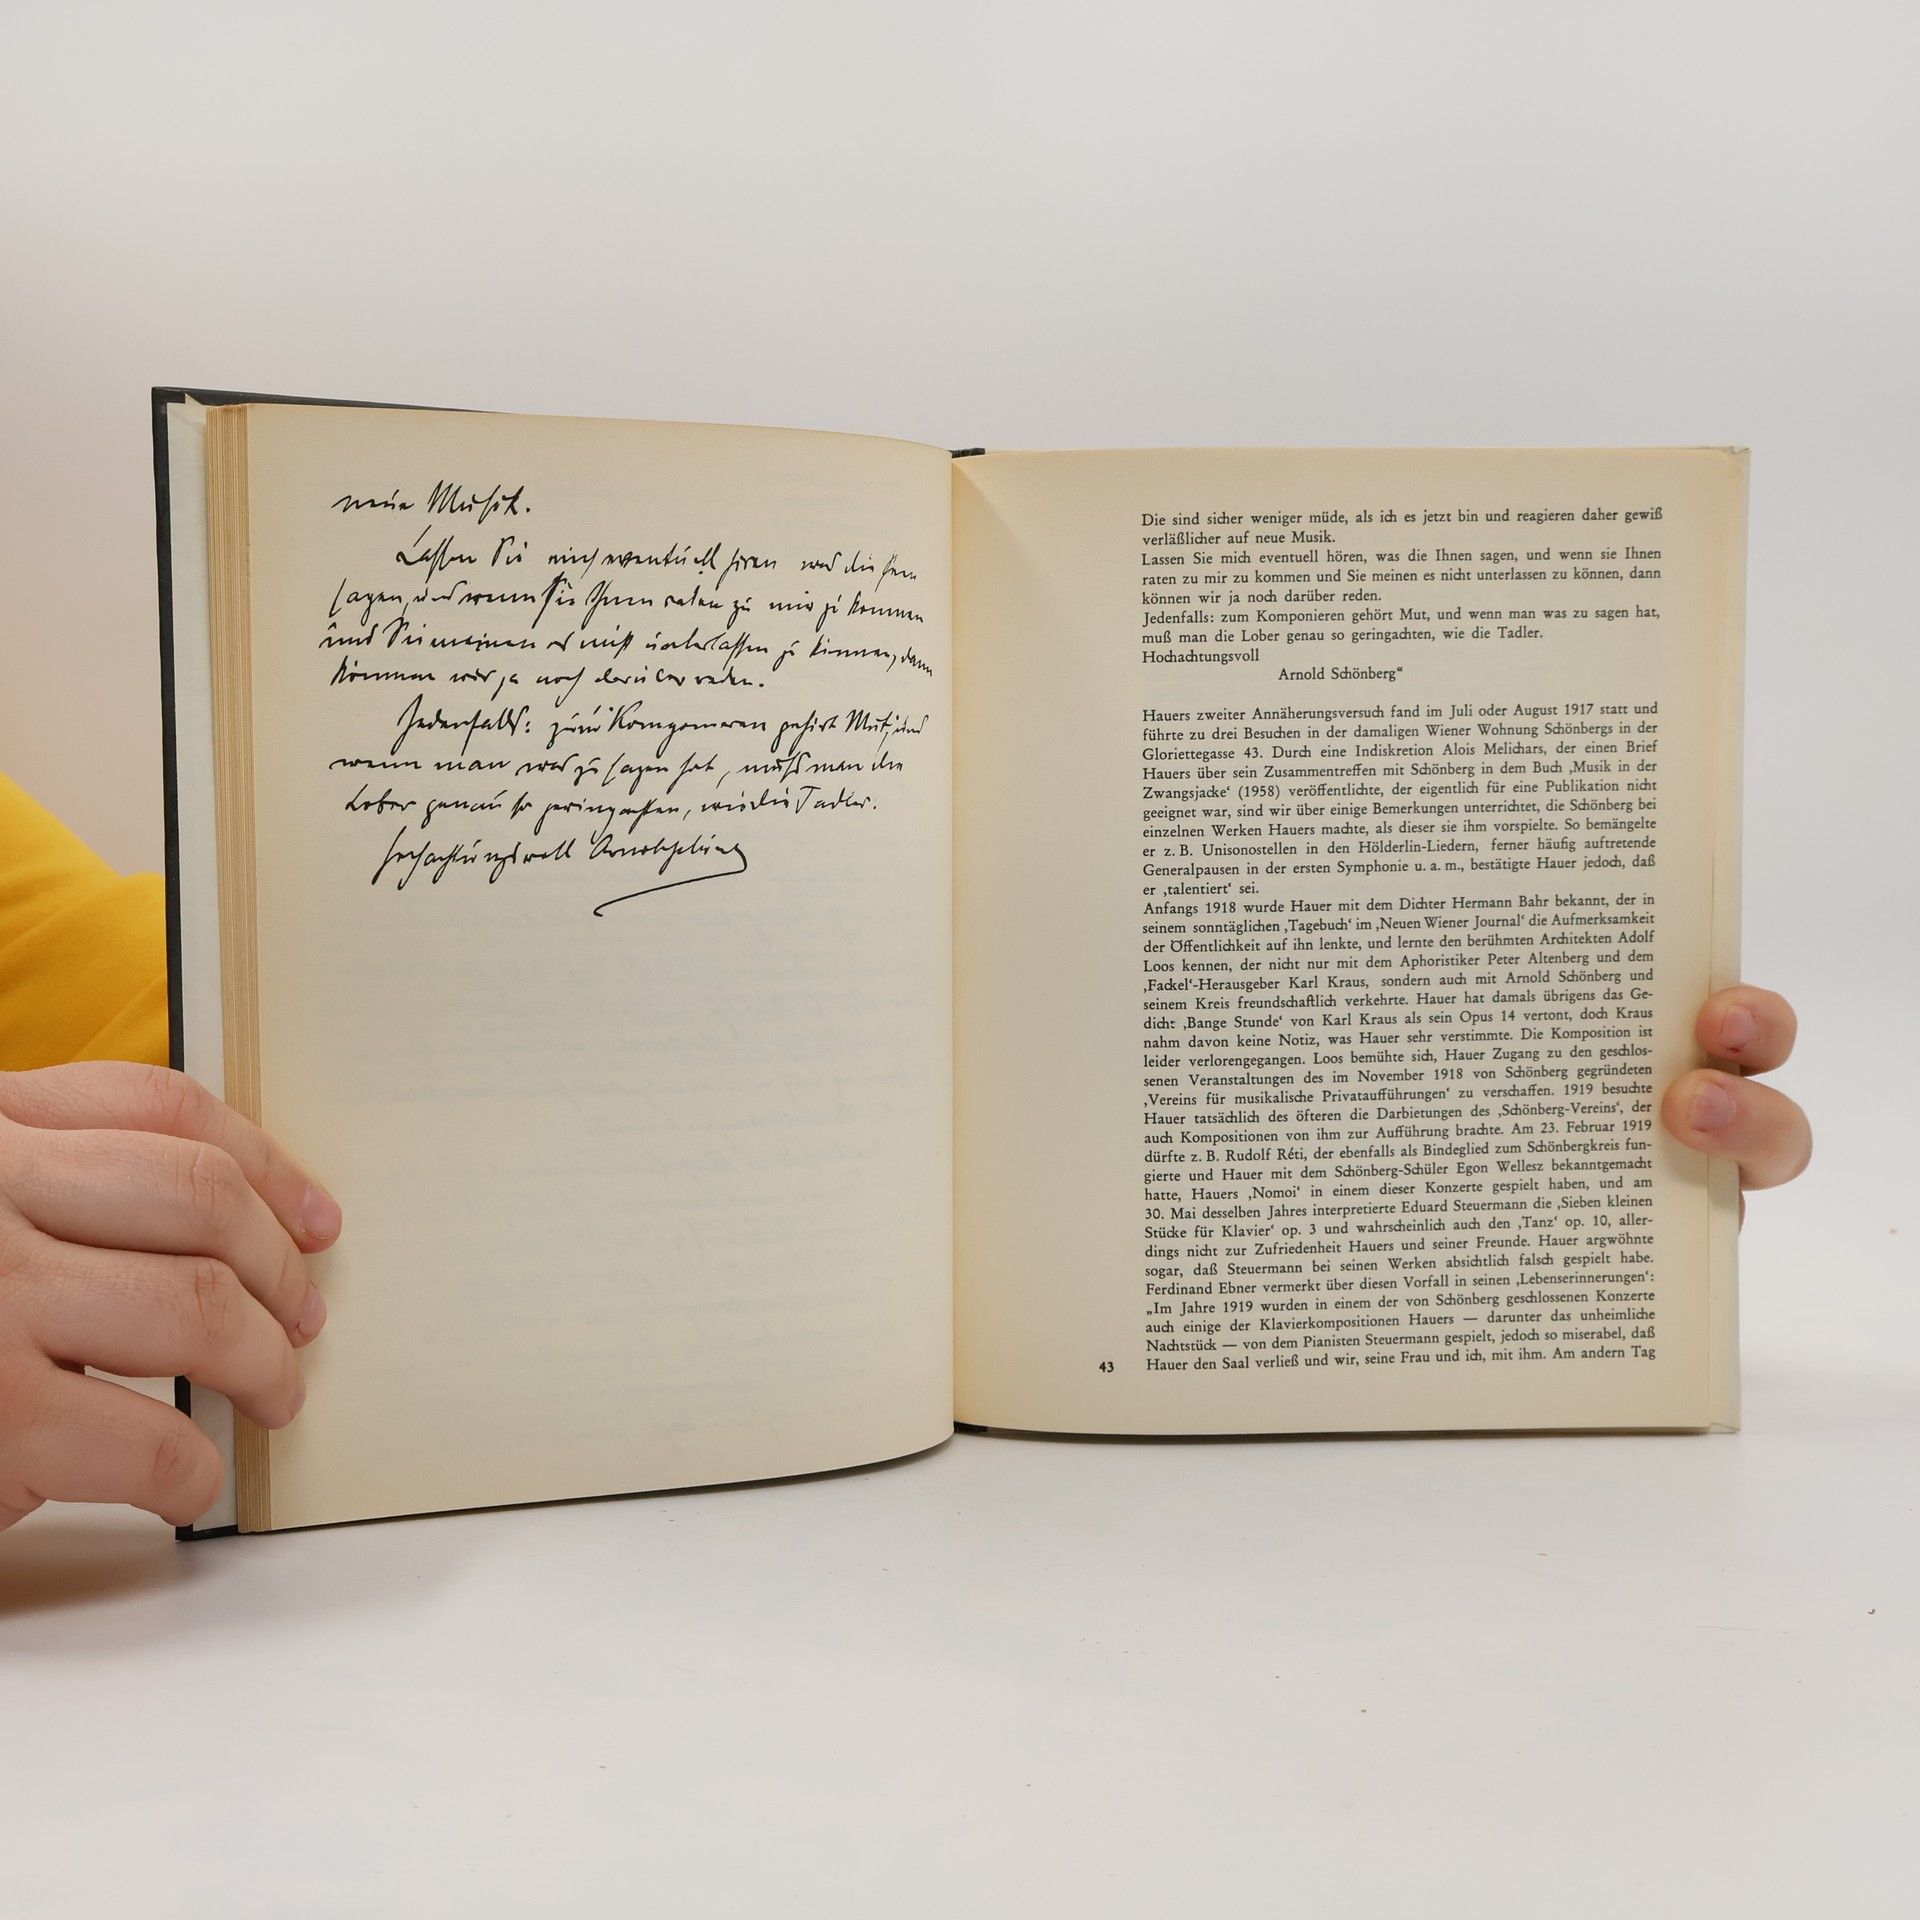 neue Musik.
Lassen Sie mich eventuell hören was die Ihnen
sagen, und wenn sie Ihnen raten zu mir zu kommen
und Sie meinen es nicht unterlassen zu können, dann
können wir ja noch darüber reden.
Jedenfalls: zum Komponieren gehört Mut; und
wenn man was zu sagen hat, muß man die
Lober genau so geringachten, wie die Tadler.
Hochachtungsvoll Arnold Schönberg
Die sind sicher weniger müde, als ich es jetzt bin und reagieren daher gewiß
verläßlicher auf neue Musik.
Lassen Sie mich eventuell hören, was die Ihnen sagen, und wenn sie Ihnen
raten zu mir zu kommen und Sie meinen es nicht unterlassen zu können, dann
können wir ja noch darüber reden.
Jedenfalls: zum Komponieren gehört Mut, und wenn man was zu sagen hat,
muß man die Lober genau so geringachten, wie die Tadler.
Hochachtungsvoll
Arnold Schönberg“
Hauers zweiter Annäherungsversuch fand im Juli oder August 1917 statt und
führte zu drei Besuchen in der damaligen Wiener Wohnung Schönbergs in der
Gloriettegasse 43. Durch eine Indiskretion Alois Melichars, der einen Brief
Hauers über sein Zusammentreffen mit Schönberg in dem Buch ‚Musik in der
Zwangsjacke‘ (1958) veröffentlichte, der eigentlich für eine Publikation nicht
geeignet war, sind wir über einige Bemerkungen unterrichtet, die Schönberg bei
einzelnen Werken Hauers machte, als dieser sie ihm vorspielte. So bemängelte
er z. B. Unisonostellen in den Hölderlin-Liedern, ferner häufig auftretende
Generalpausen in der ersten Symphonie u. a. m., bestätigte Hauer jedoch, daß
er ‚talentiert‘ sei.
Anfangs 1918 wurde Hauer mit dem Dichter Hermann Bahr bekannt, der in
seinem sonntäglichen ‚Tagebuch‘ im ‚Neuen Wiener Journal‘ die Aufmerksamkeit
der Öffentlichkeit auf ihn lenkte, und lernte den berühmten Architekten Adolf
Loos kennen, der nicht nur mit dem Aphoristiker Peter Altenberg und dem
‚Fackel‘-Herausgeber Karl Kraus, sondern auch mit Arnold Schönberg und
seinem Kreis freundschaftlich verkehrte. Hauer hat damals übrigens das Ge-
dicht ‚Bange Stunde‘ von Karl Kraus als sein Opus 14 vertont, doch Kraus
nahm davon keine Notiz, was Hauer sehr verstimmte. Die Komposition ist
leider verlorengegangen. Loos bemühte sich, Hauer Zugang zu den geschlos-
senen Veranstaltungen des im November 1918 von Schönberg gegründeten
‚Vereins für musikalische Privataufführungen‘ zu verschaffen. 1919 besuchte
Hauer tatsächlich des öfteren die Darbietungen des ‚Schönberg-Vereins‘, der
auch Kompositionen von ihm zur Aufführung brachte. Am 23. Februar 1919
dürfte z. B. Rudolf Réti, der ebenfalls als Bindeglied zum Schönbergkreis fun-
gierte und Hauer mit dem Schönberg-Schüler Egon Wellesz bekanntgemacht
hatte, Hauers ‚Nomoi‘ in einem dieser Konzerte gespielt haben, und am
30. Mai desselben Jahres interpretierte Eduard Steuermann die ‚Sieben kleinen
Stücke für Klavier‘ op. 3 und wahrscheinlich auch den ‚Tanz‘ op. 10, aller-
dings nicht zur Zufriedenheit Hauers und seiner Freunde. Hauer argwöhnte
sogar, daß Steuermann bei seinen Werken absichtlich falsch gespielt habe.
Ferdinand Ebner vermerkt über diesen Vorfall in seinen ‚Lebenserinnerungen‘:
„Im Jahre 1919 wurden in einem der von Schönberg geschlossenen Konzerte
auch einige der Klavierkompositionen Hauers — darunter das unheimliche
Nachtstück — von dem Pianisten Steuermann gespielt, jedoch so miserabel, daß
43 Hauer den Saal verließ und wir, seine Frau und ich, mit ihm. Am andern Tag